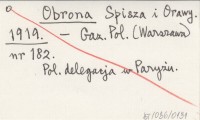 Obrona Spisza i Orawy.
1919. - Gaz. Pol. (Warszawa)
nr 182.
Pol. delegacja w Paryżu.